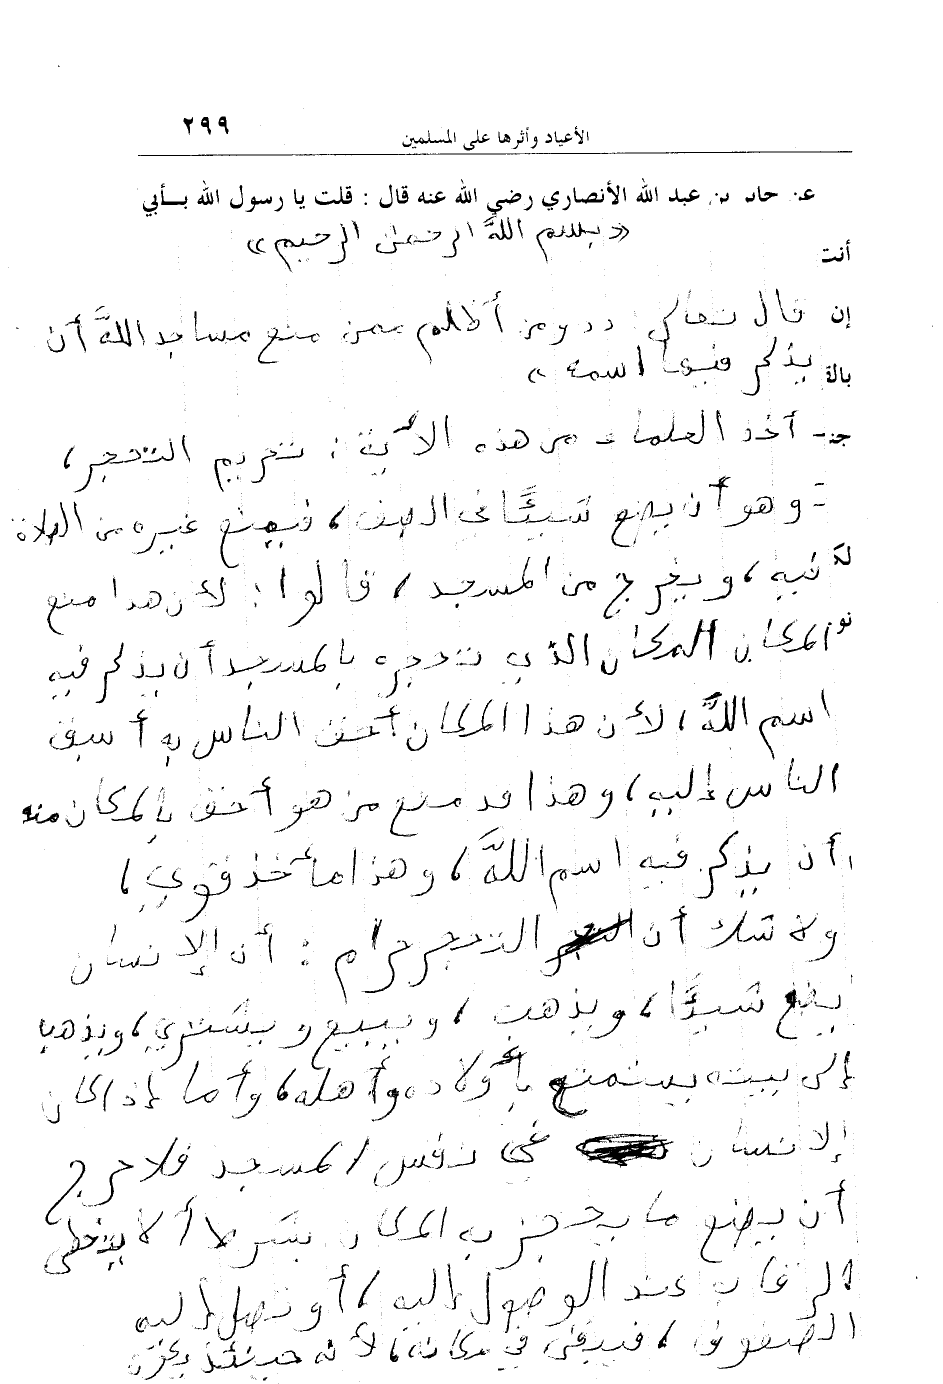 ٢٩٩
الأعياد وأثرها على المسلمين
عن جابر بن عبد الله الأنصاري رضي الله عنه قال : قلت يا رسول الله بـأبي
« بسم اللهَّ الرحمن الرحيم »
أنت
إن قال تعالى : « ومن أظلم ممن منع مساجد اللهَّ أن
يذكر فيها اسمه »
جـ - أخذ العلماء من هذه الآية : تحريم التحجر ،
- وهو أن يضع شيئًا في الصف ، فيمنع غيره من الصلاة
فيه ، ويخرج من المسجد ، قالوا : لأن هذا منع
نو المكان المكان الذي تحجره بالمسجد أن يذكر فيه
اسم اللهَّ ، لأن هذا المكان أحق الناس به أسبق
الناس إليه ، وهذا قد منع من هو أحق بالمكان منه
أن يذكر فيه اسم اللهَّ ، وهذا مأخذ قوي ،
ولا شك أن التحجر حرام : أن الإنسان
يضع شيئًا ، ويذهب ، ويبيع ويشتري ، ويذهب
إلى بيته يستمتع بأولاده وأهله ، وأما إذا كان
الإنسان في نفس المسجد فلا حرج
أن يضع ما يحجز به المكان بشرط ألا يتخطى
الرقاب عند الوصول إليه ، أو تصل إليه
الصفوف ، فيبقى في مكانه ، لأنه حينئذ يكون